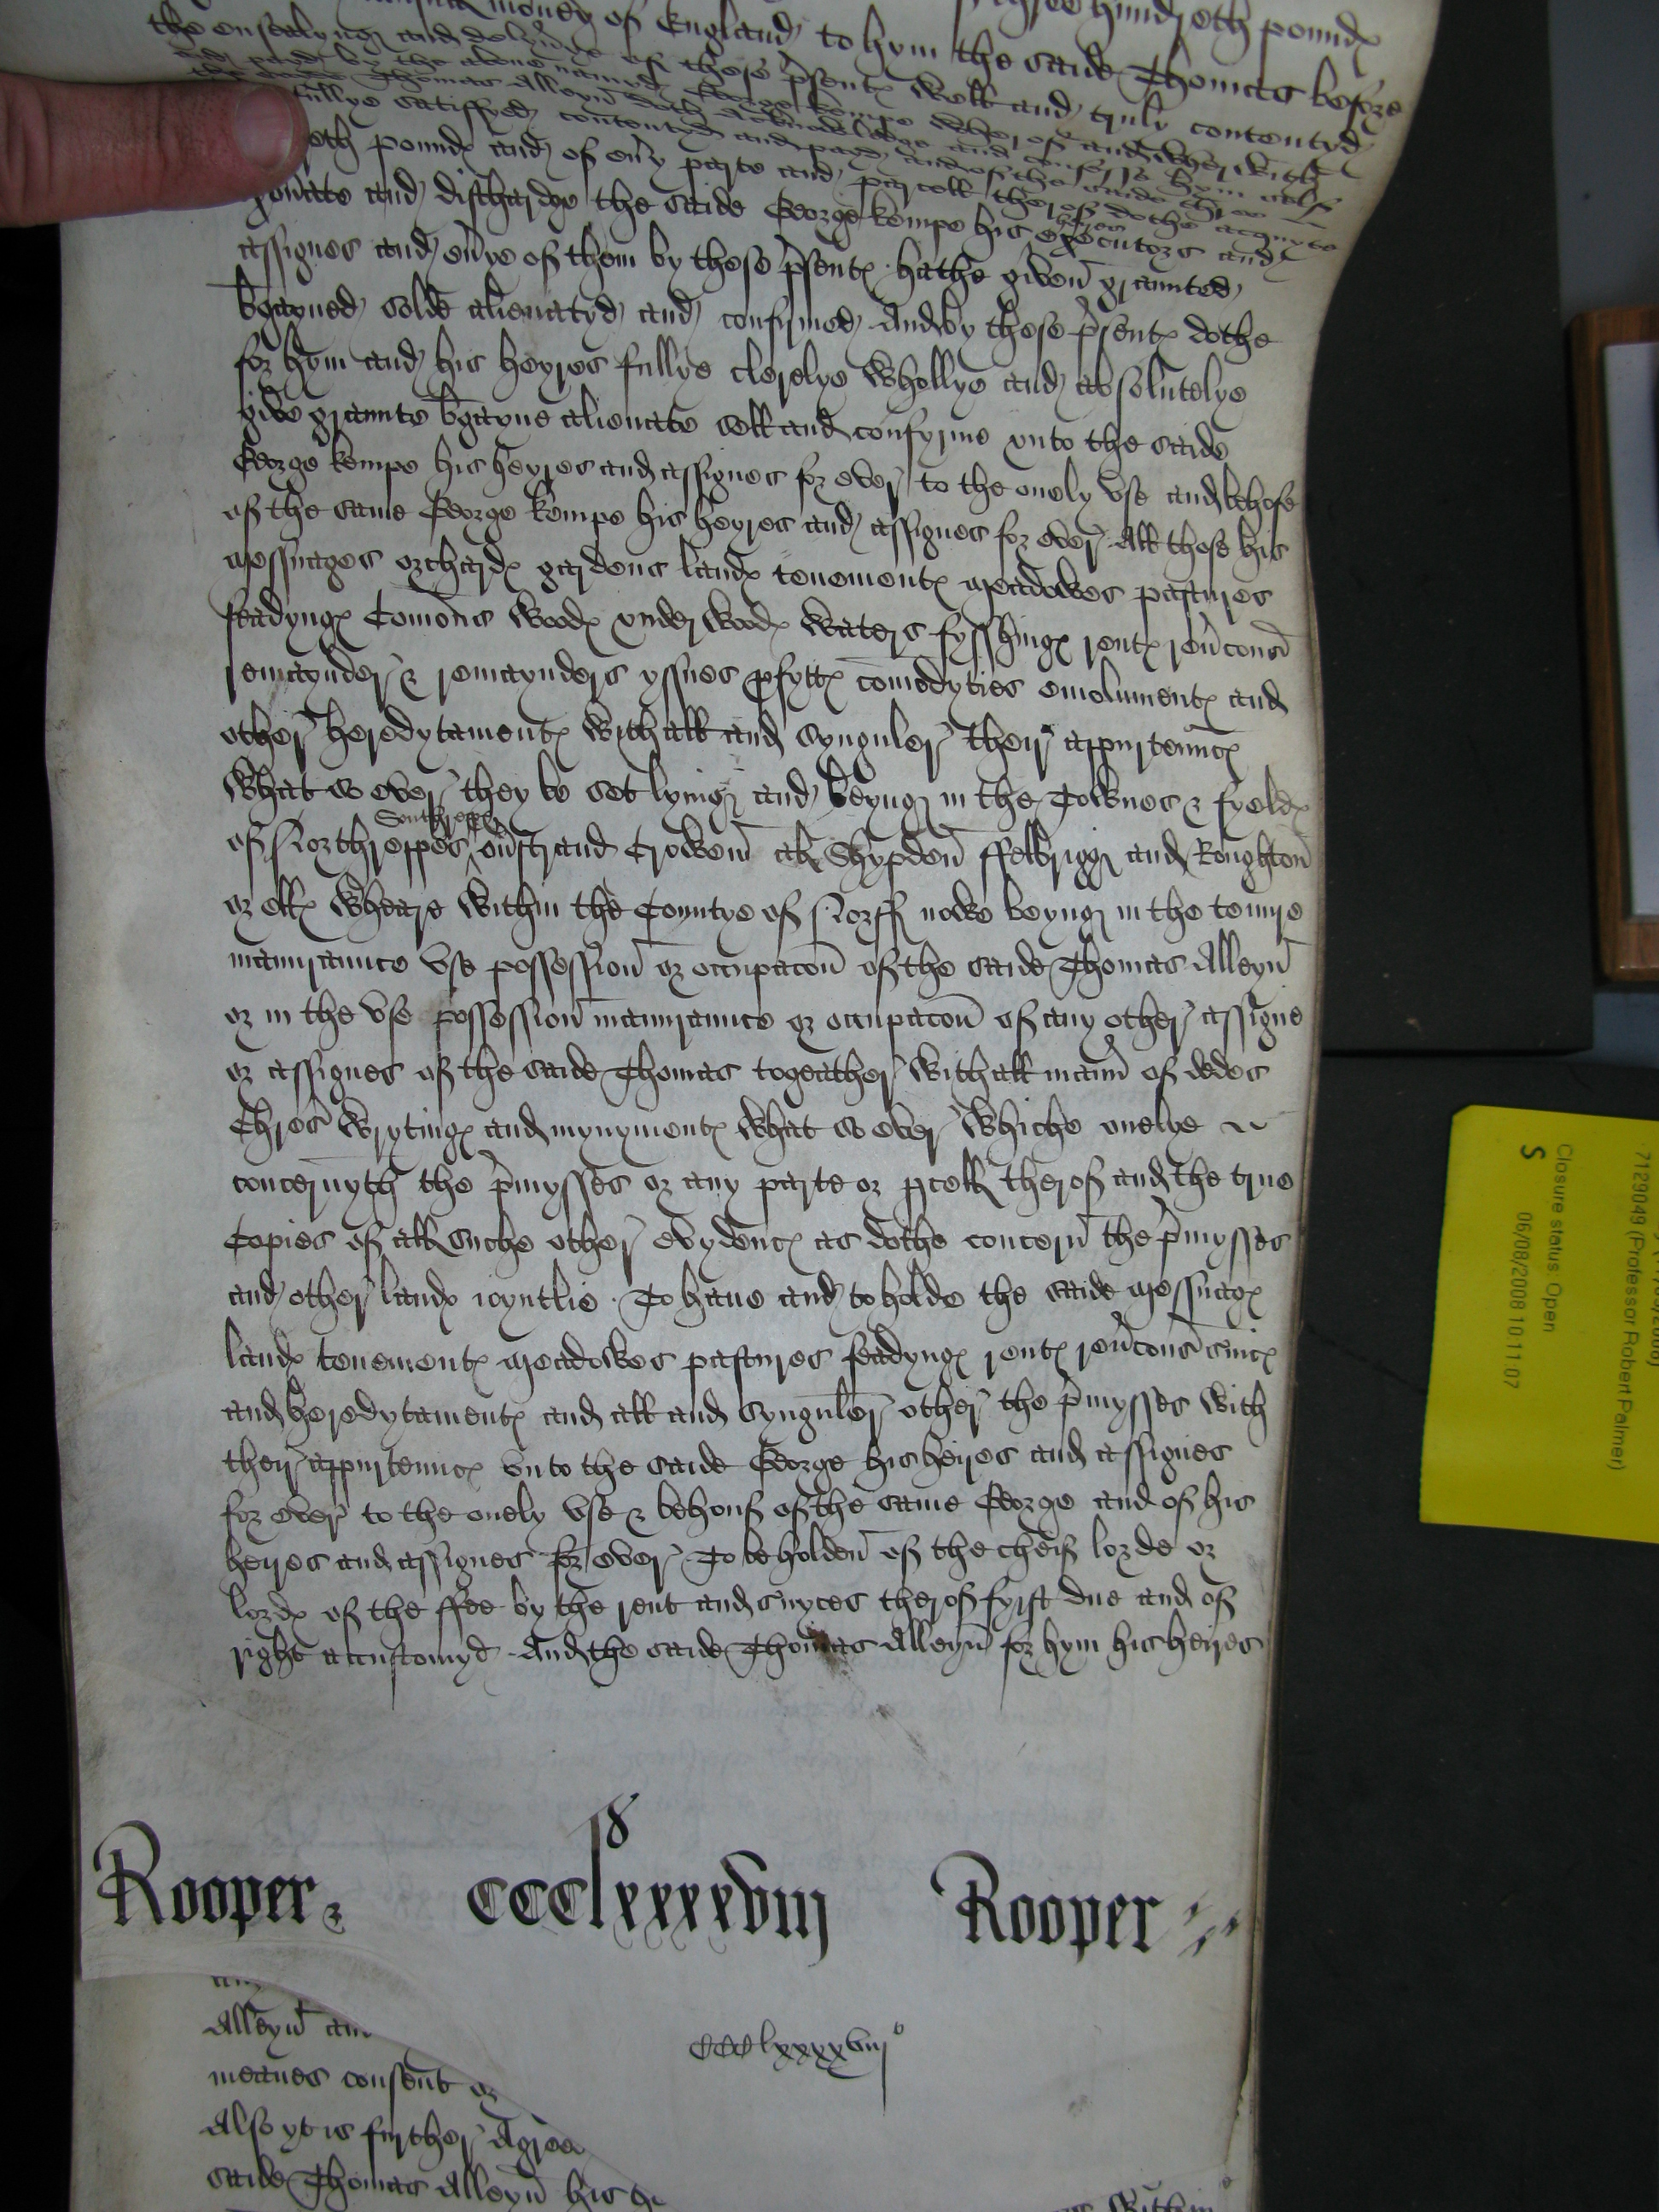 money of England to hym the saide Thomas before
the ensealyng and delyu'ye of these p'sentes well and truly contentyd
and payed by the above named George Kempe wherof and wherwith
the saide Thomas Alleyn doth Acknowledge and confesse hym self
fullye satisfyed contentyd and payed and of the saide three
pound and of eu'y parte and parcell therof dothe acquyte
and discharge the saide George Kempe his heires executors and
assignes and eu'ye of them by these p'sentes hathe given graunted
bgayned solde alienatyd and confirmed And by these p'sentes dothe
for hym and his heyres fullye clerelye whollye and absolutelye
give graunte bgayne alienate sell and confyrme unto the saide
George Kempe his heyres and assignes for ever to the onely use and behofe
of the same George Kempe his heyres and assignes for ever All those his
messuages orchardes gardens landes tenementes meadowes pastures
feadynges Comons woodes underwoodes waters fysshinges rentes reu'cons
remaynder & remaynders yssues pfyttes comodyties emolumentes and
other heredytamentes with all and Synguler their appurtennces
What so ever they be set lying and beyng in the Townes & fyeldes
of Northreppes Southreppes Ou'strand Crowem als Shypden ffelbrigg and Roughton
or elles wheare within the Countye of Norff nowe beyng in the tenure
manurance use possession or occupacon of the saide Thomas Alleyn
or in the use possession manurance or occupacon of any other assigne
or assignes of the saide Thomas togeather with all man' of dedes
Chres wrytinges and mynymentes what so ever whiche onelye
concernyth the p'mysses or any parte or pcell therof and the true
Copies of all suche other evydences as dothe concern the p'mysses
and other landes ioyntlie To have and to holde the saide messuages
landes tenementes meadowes pastures feadynges rentes reu'cons s'uices
and heredytamentes and all and Synguler other the p'mysses with
their appurtennces unto the saide George his heires and assignes
for ever to the onely use & behouf of the same George and of his
heires and assignes for ever To be holden of the cheif lorde or
lordes of the ffee by the rent and s'uyces therof fyrst due and of
right accustomyd And the saide Thomas Alleyn for hym his heires
Rooper
ccclxxxxviij
Rooper
ccclxxxxviij°
Alleyn
meanes consent or
Also yt is further Agree
saide Thomas Alleyn his
Within
Closure status: Open
S 06/08/2008 10:11:07
7129049 (Professor Robert Palmer)